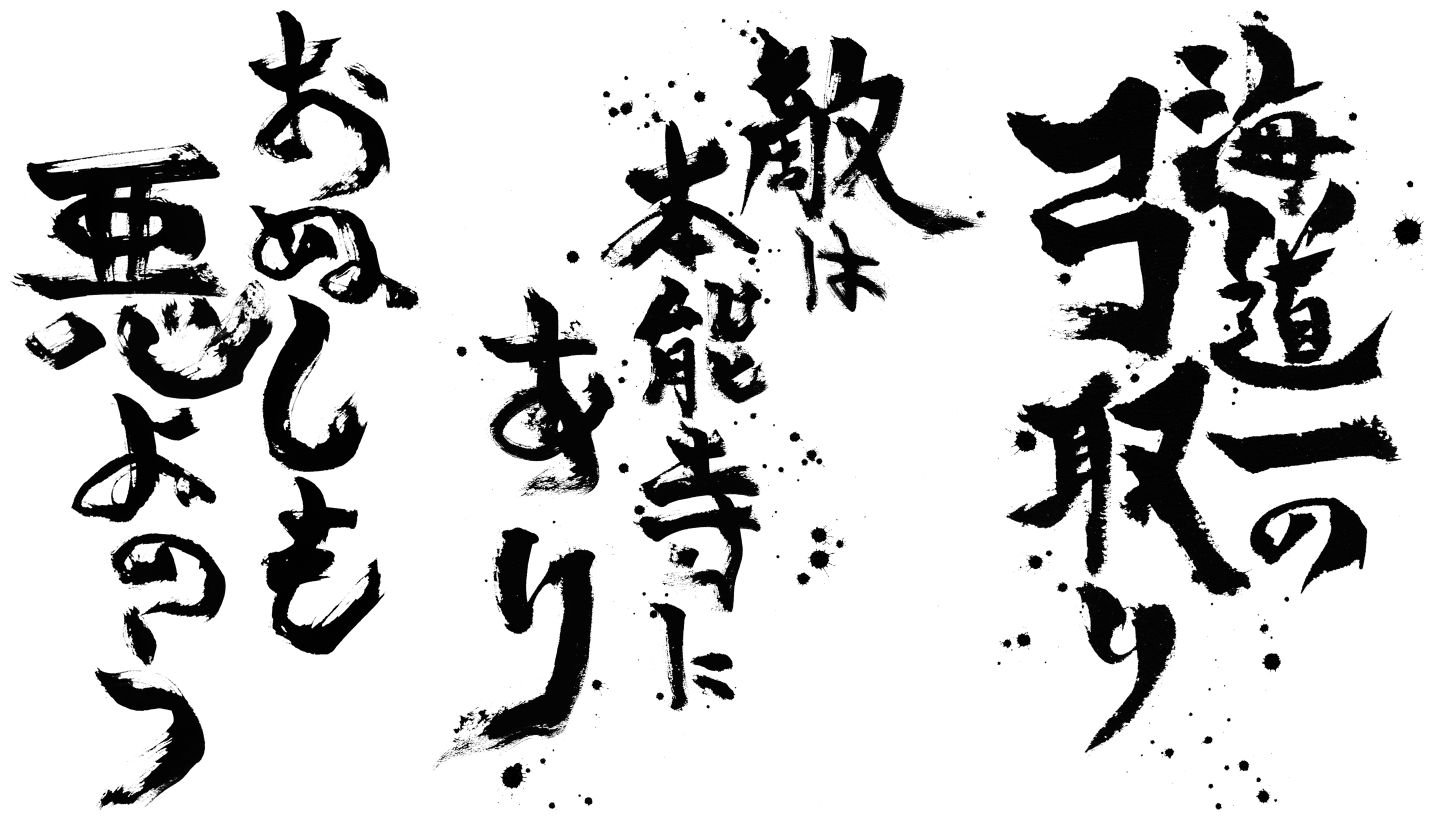 海道一の
弓取り
敵は
本能寺に
あり
おぬしも
悪よのう